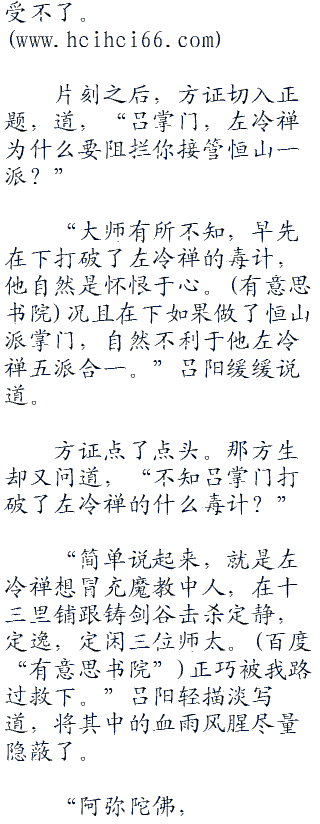 受不了。
(www.hcihci66.com)
片刻之后，方证切入正
题，道，“吕掌门，左冷禅
为什么要阻拦你接管恒山一
派？”
“大师有所不知，早先
在下打破了左冷禅的毒计，
他自然是怀恨于心。(有意思
书院)况且在下如果做了恒山
派掌门，自然不利于他左冷
禅五派合一。”吕阳缓缓说
道。
方证点了点头。那方生
却又问道，“不知吕掌门打
破了左冷禅的什么毒计？”
“简单说起来，就是左
冷禅想冒充魔教中人，在十
三里铺跟铸剑谷击杀定静，
定逸，定闲三位师太。(百度
“有意思书院”)正巧被我路
过救下。”吕阳轻描淡写
道，将其中的血雨风腥尽量
隐蔽了。
“阿弥陀佛，